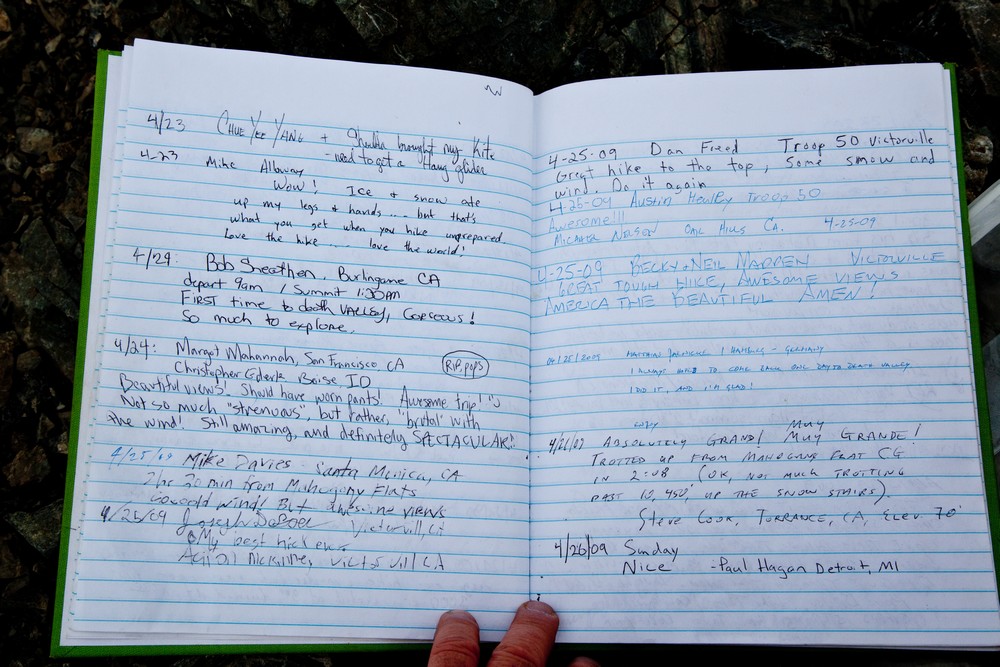 4/23 CHUE YEE YANG + brought my Kite
- need to get a Hang glider
4-23 Mike Alloway
WOW! Ice & snow ate
up my legs & hands... but that's
what you get when you hike unprepared.
Love the hike .... love the world!
4/24: Bob Burlingame CA
depart 9am / Summit 1:30pm
FIRST time to death VALLEY, GORGEOUS!
So much to explore.
4/24: Margot Mahannah, San Francisco CA
Christopher Boise ID
RIP, pops
Beautiful views! Should have worn pants! Awesome trip!
Not so much "strenuous", but rather, "brutal" with
the wind! Still amazing, and definitely SPECTACULAR!
4/25/09 Mike Davies Santa Monica, CA
2hr 30 min from Mahogany Flats
wind! But awesome views
4/25/09 Joseph Victorville, CA
My best hike ever.
Victorvill CA
4-25-09 Dan Freed Troop 50 Victorville
Great hike to the top, some snow and
wind. Do it again
4-25-09 Austin Troop 50
Awesome!!!
Michael Nelson Oak Hills CA. 4-25-09
4-25-09 BECKY & NEIL VICTORVILLE
GREAT TOUGH HIKE, AWESOME VIEWS
AMERICA THE BEAUTIFUL AMEN!
04/25/2009 / HAMBURG - GERMANY
I ALWAYS TO COME BACK ONE DAY TO DEATH VALLEY
I DID IT, AND I'M GLAD!
4/26/09 ABSOLUTELY GRAND! MUY MUY GRANDE!
TROTTED UP FROM MAHOGANY FLAT CG
IN 2:08 (OK, NOT MUCH TROTTING
PAST 10,450' UP THE SNOW STAIRS).
STEVE COOK, TORRANCE, CA, ELEV 70'
4/26/09 Sunday
Nice - Paul Hagan Detroit, MI